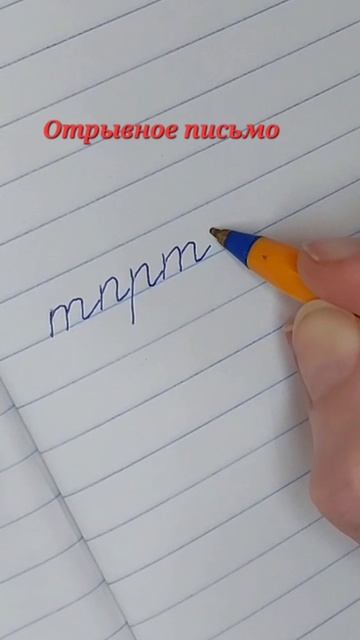 Отрывное письмо
тпрт